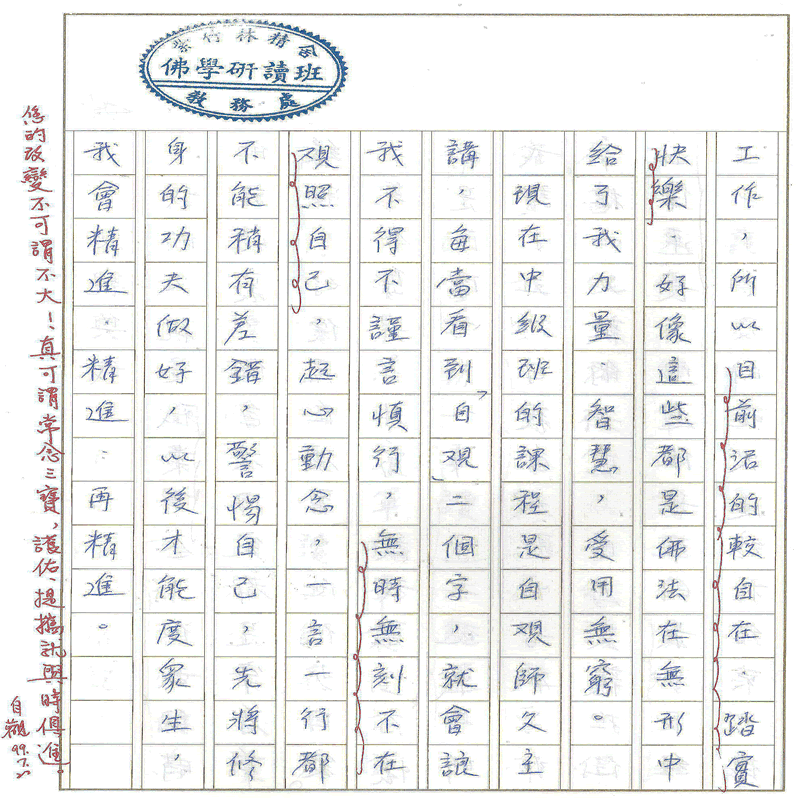 紫竹林精舍
佛學研讀班
教務處
工作，所以目前活的較自在．踏實
快樂．好像這些都是佛法在無形中
給了我力量．智慧，受用無窮。
現在中級班的課程是自观師父主
講，每當看到「自观」二個字，就會讓
我不得不謹言慎行，無時無刻不在
观照自己，起心動念，一言一行都
不能稍有差錯，警惕自己，先將修
身的功夫做好，以後才能度眾生，
我會精進．精進：再精進。
您的改變不可謂不大！真可謂常念三寶，護佑、提攜就與時俱進。
自觀
99.7.21